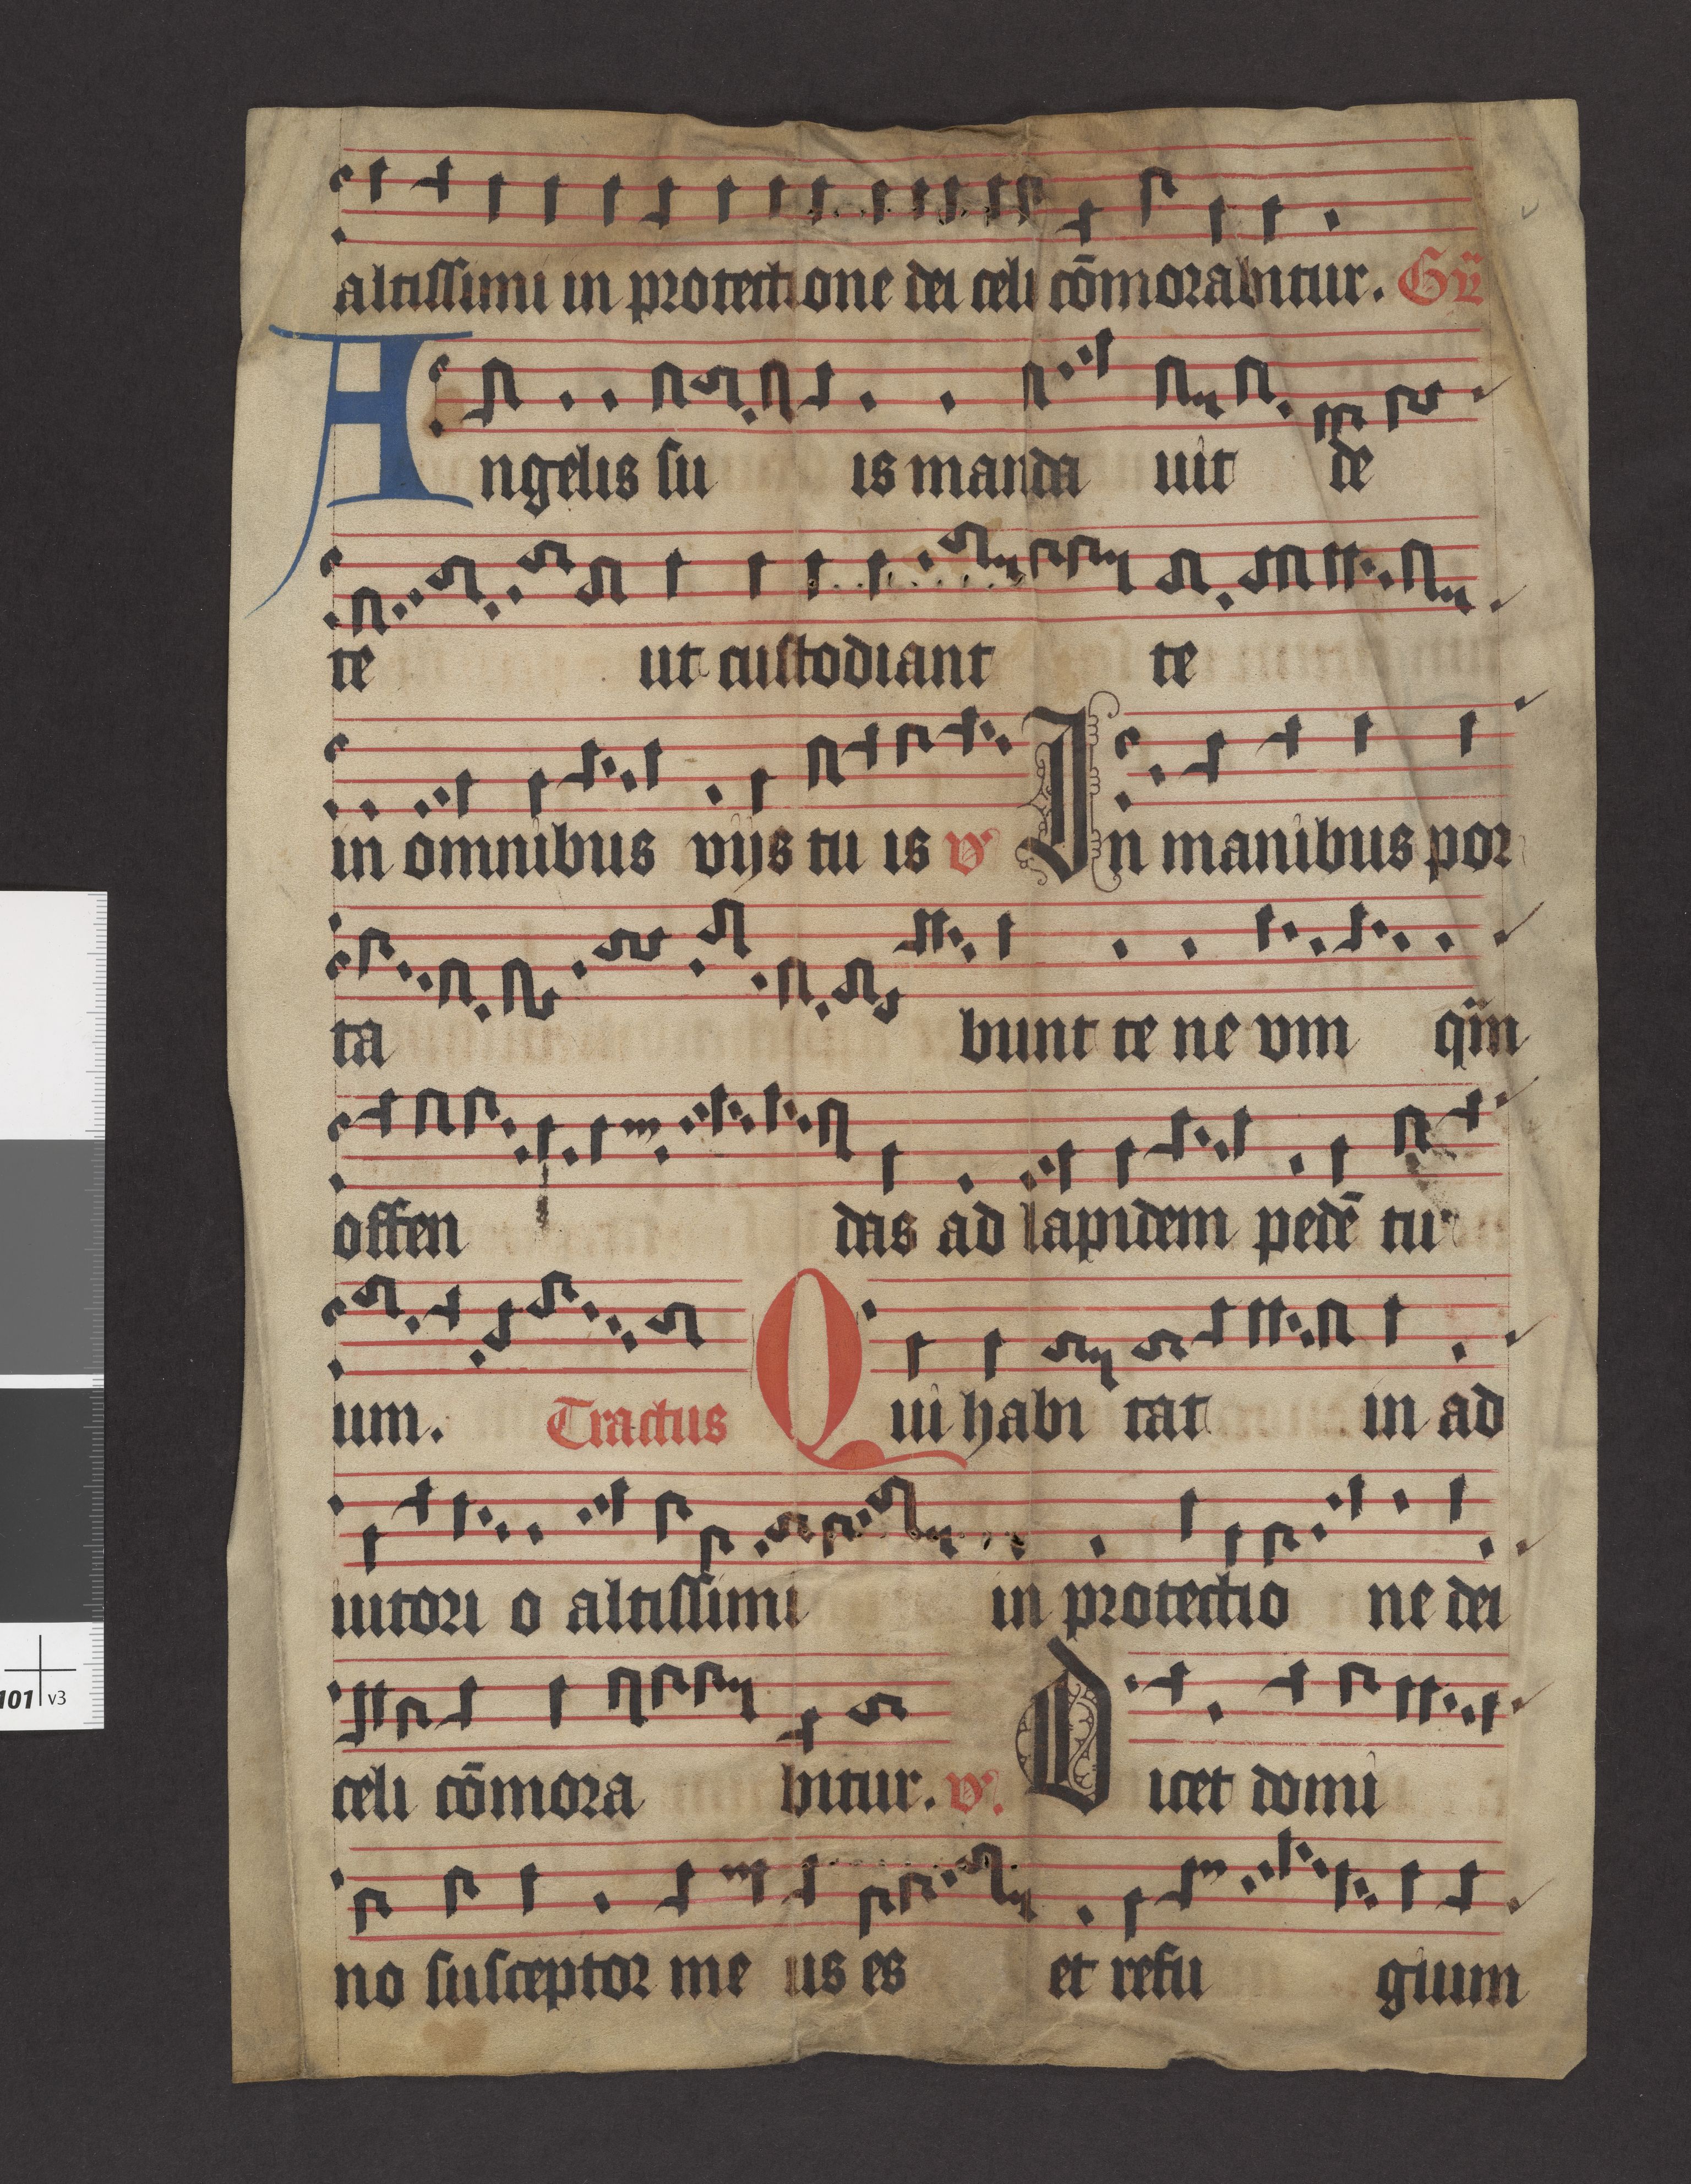 altissimi in protectione dei celi cōmorabitur. Gr̈
Angelis su is manda uit de
te ut custodiant te
in omnibus vijs tu is v̓ In manibus por
ta bunt te ne vm qn̈
offen das ad lapidem pedē tu
um. Tractus Qui habi tat in ad
iutori o altissimi in protectio ne dei
celi cōmora bitur. v̓. Dicet domi
no susceptor me us es et refu gium
101 v3